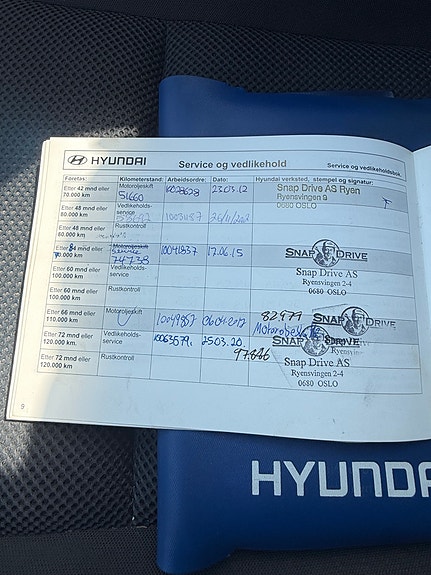 HYUNDAI
Service og vedlikehold
Service og vedlikeholdsbok
Foretas: Kilometerstand: Arbeidsordre: Dato: Hyundai verksted, stempel og signatur:
Etter 42 mnd eller 70.000 km Motoroljeskift 51660 10028628 23.03.12 Snap Drive AS Ryen
Ryensvingen 9
0680 OSLO
Etter 48 mnd eller 80.000 km Vedlikeholds-service
Etter 48 mnd eller 80.000 km Rustkontroll
Etter 84 mnd eller Motoroljeskift service 74738 10041837 17.06.15 SNAP DRIVE
Etter 60 mnd eller 100.000 km Vedlikeholds-service Snap Drive AS
Ryensvingen 2-4
0680 OSLO
Etter 60 mnd eller 100.000 km Rustkontroll
Etter 66 mnd eller 110.000 km Motoroljeskift 82979 SNAP DRIVE
Etter 72 mnd eller 120.000 km Vedlikeholds-service 10063579 25.03.20 SNAP DRIVE
Etter 72 mnd eller 120.000 km Rustkontroll 97866 Snap Drive AS
Ryensvingen 2-4
0680 OSLO
9
HYUNDA